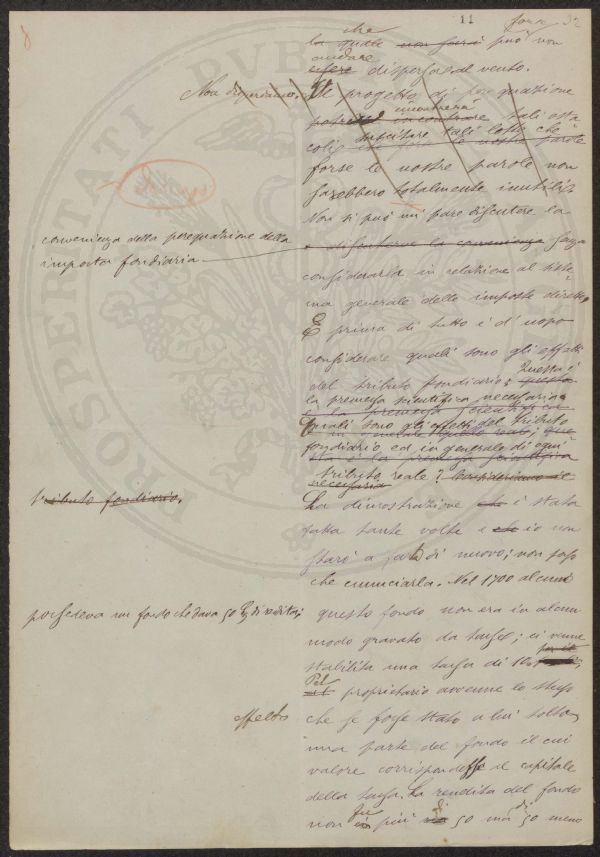 11
8
che
la quale non farà può non
andare
essere disperso al vento.
Non digerdiamo. Il progetto di perequazione
incontrerà
potrebbe incontrare tali osta
suscitare tali lotte che
coli che le nostre parole
forse le nostre parole non
farebbero totalmente inutili.
Non si può mi pare discutere la
convenienza della perequazione della
imposta fondiaria
e discuterne la convenienza senza
considerarla in relazione al siste
ma generale delle imposte dirette.
E prima di tutto è d'uopo
considerare quali sono gli effetti
del tributo fondiario. Questa è
la premessa scientifica necessaria
è la premessa scientifica
Quali sono gli effetti del tributo
fondiario ed in generale di ogni
tributo reale?
necessaria
tributo fondiario.
La dimostrazione che è stata
fatta tante volte e che io non
starò a farla di nuovo; non fo
che enunciarla. Nel 1700 alcuni
possedeva un fondo che dava 50 di rendita;
questo fondo non era in alcun
modo gravato da tassa; ci venne
stabilita una tassa di
Pel
il proprietario avvenne lo stesso
effetto
che se fosse stato a lui tolta
una parte del fondo il cui
valore corrispondesse il capitale
della tassa. La rendita del fondo
non fu più di 50 ma di 50 meno